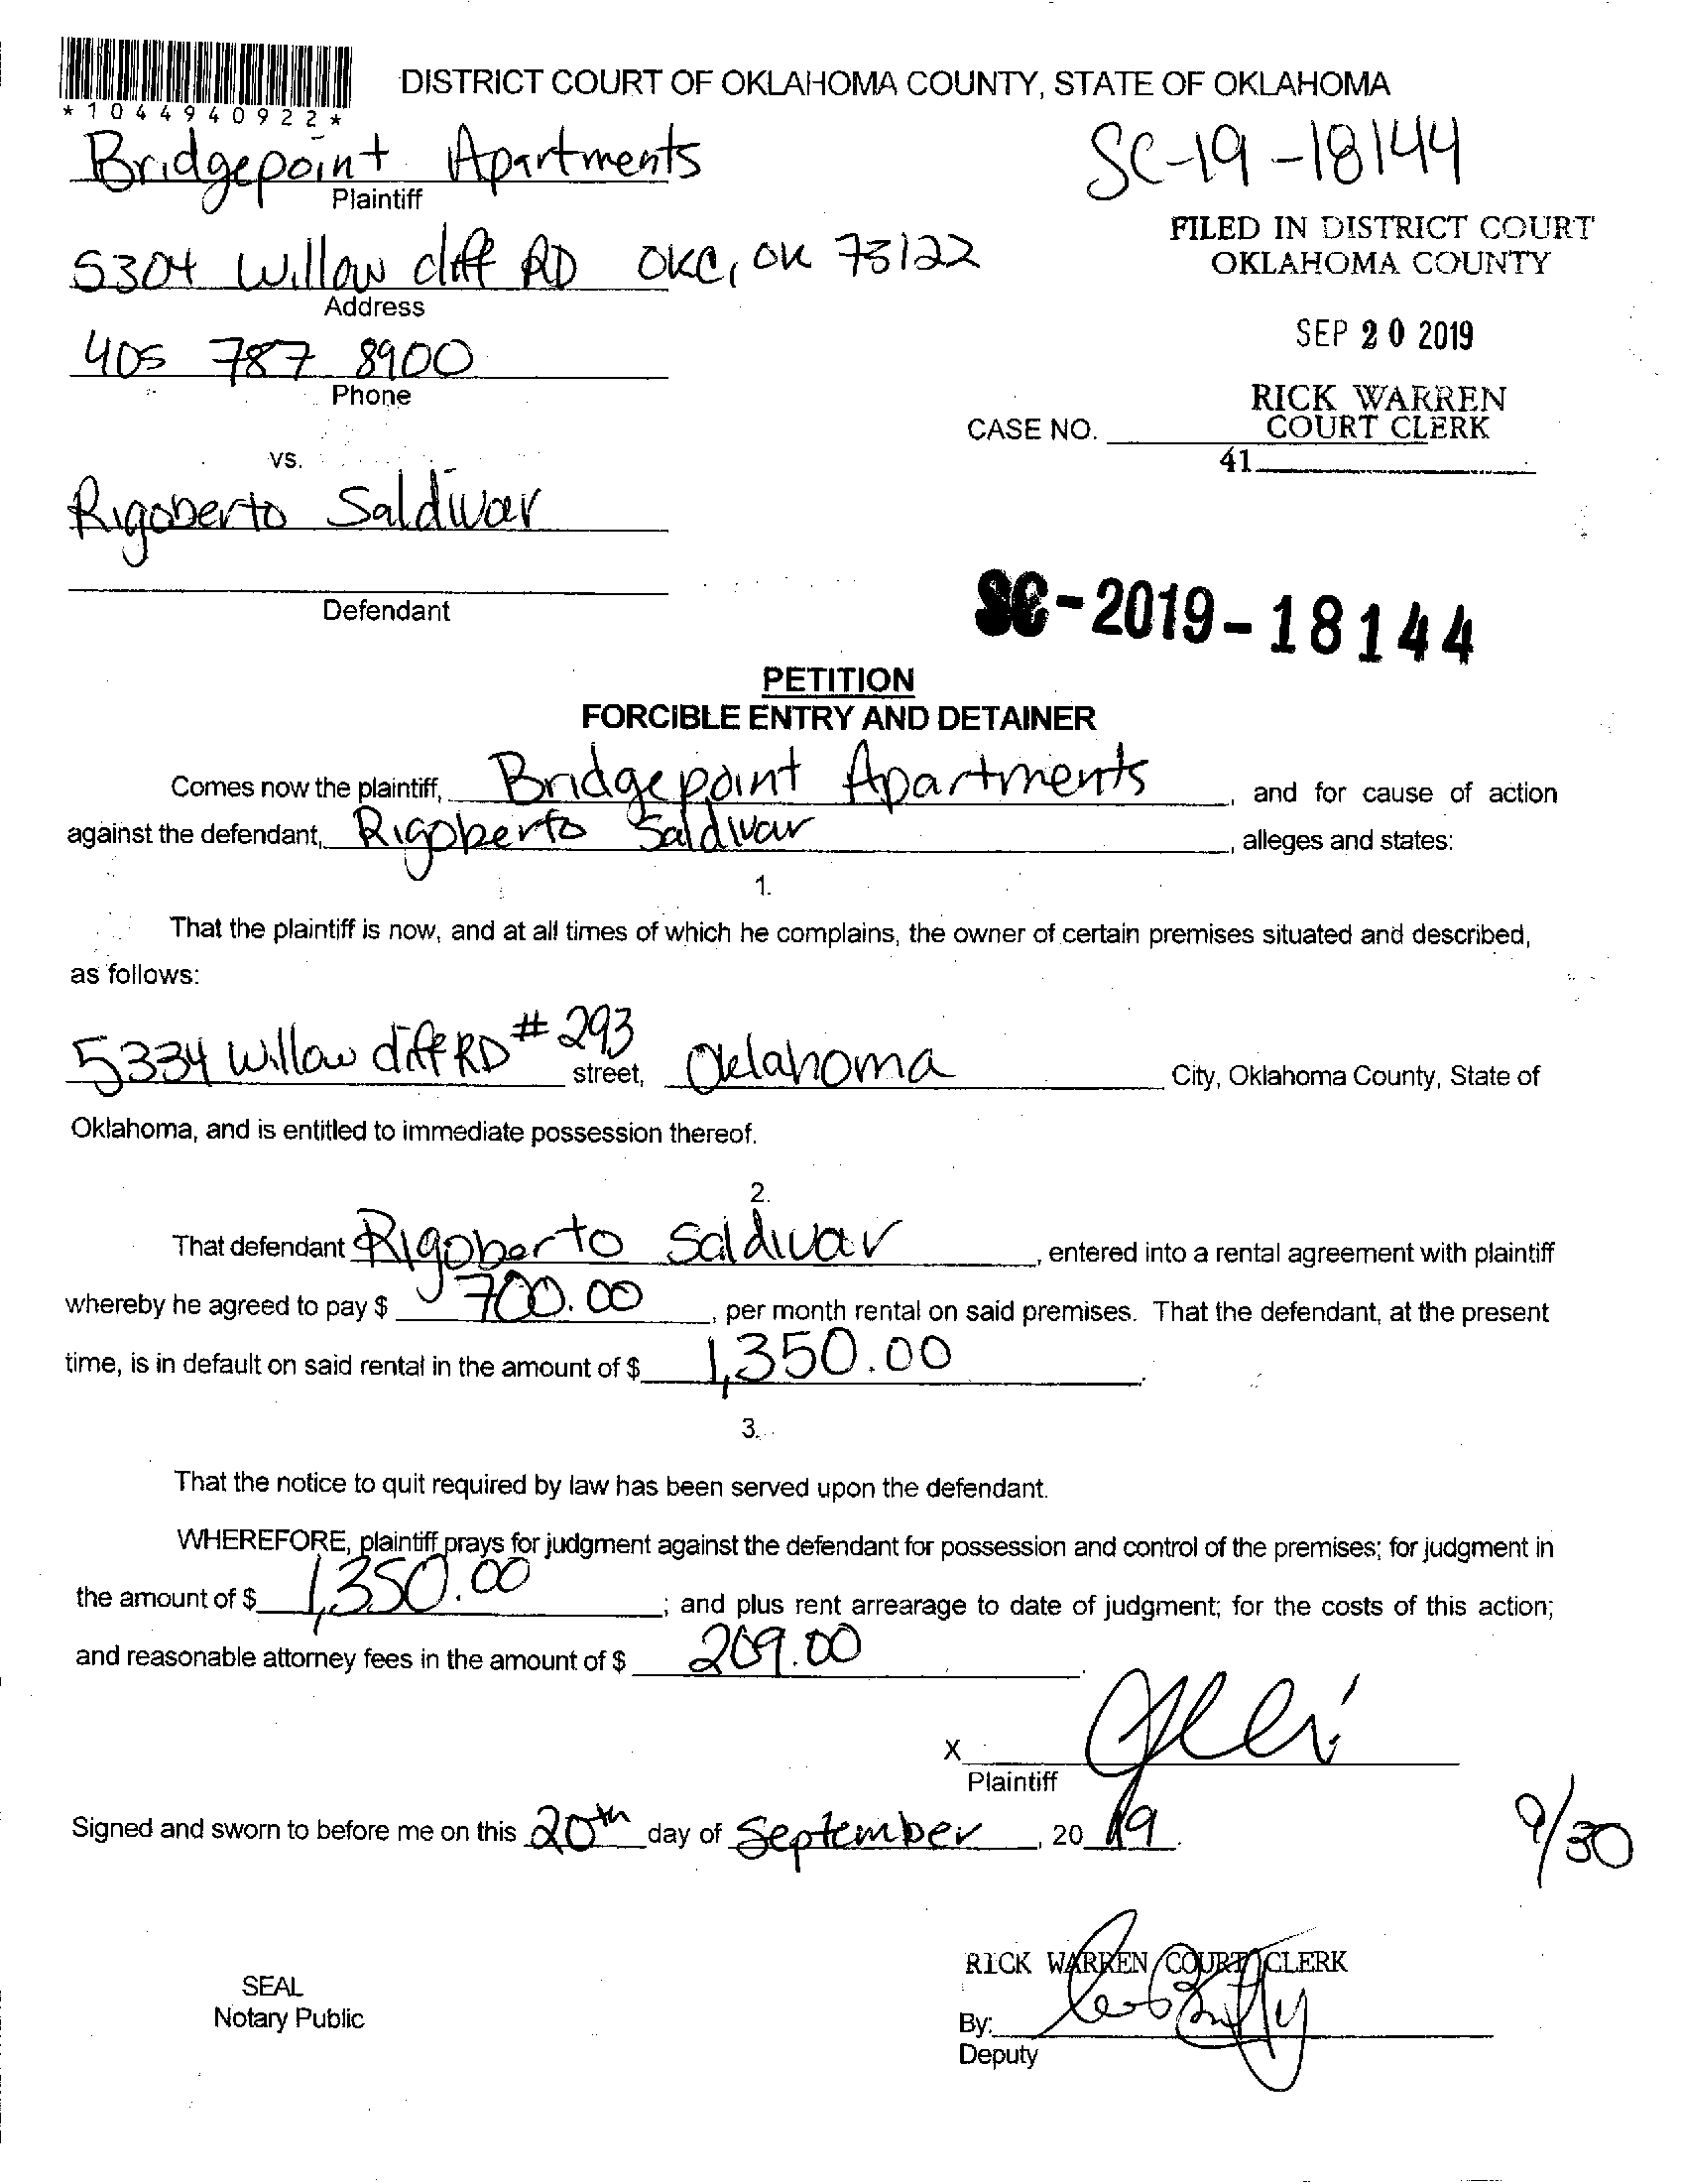 DISTRICT COURT OF OKLAHOMA COUNTY, STATE OF OKLAHOMA
*1044940922*
Bridgepoint Apartments
Plaintiff
SC-19-18144
5304 Willow cliff RD OKC, OK 73122
Address
FILED IN DISTRICT COURT
OKLAHOMA COUNTY
405 787 8900
Phone
SEP 20 2019
RICK WARREN
COURT CLERK
CASE NO.
41
vs.
Rigoberto Saldivar
Defendant
SC-2019-18144
PETITION
FORCIBLE ENTRY AND DETAINER
Comes now the plaintiff, Bridgepoint Apartments, and for cause of action
against the defendant, Rigoberto Saldivar, alleges and states:
1.
That the plaintiff is now, and at all times of which he complains, the owner of certain premises situated and described,
as follows:
5334 Willow cliff RD # 293 street, Oklahoma City, Oklahoma County, State of
Oklahoma, and is entitled to immediate possession thereof.
2.
That defendant Rigoberto Saldivar, entered into a rental agreement with plaintiff
whereby he agreed to pay $ 700.00, per month rental on said premises. That the defendant, at the present
time, is in default on said rental in the amount of $ 1,350.00.
3.
That the notice to quit required by law has been served upon the defendant.
WHEREFORE, plaintiff prays for judgment against the defendant for possession and control of the premises; for judgment in
the amount of $ 1,350.00; and plus rent arrearage to date of judgment; for the costs of this action;
and reasonable attorney fees in the amount of $ 209.00.
X
Plaintiff
Signed and sworn to before me on this 20th day of September, 2019.
9/30
RICK WARREN COURT CLERK
SEAL
Notary Public
By:
Deputy